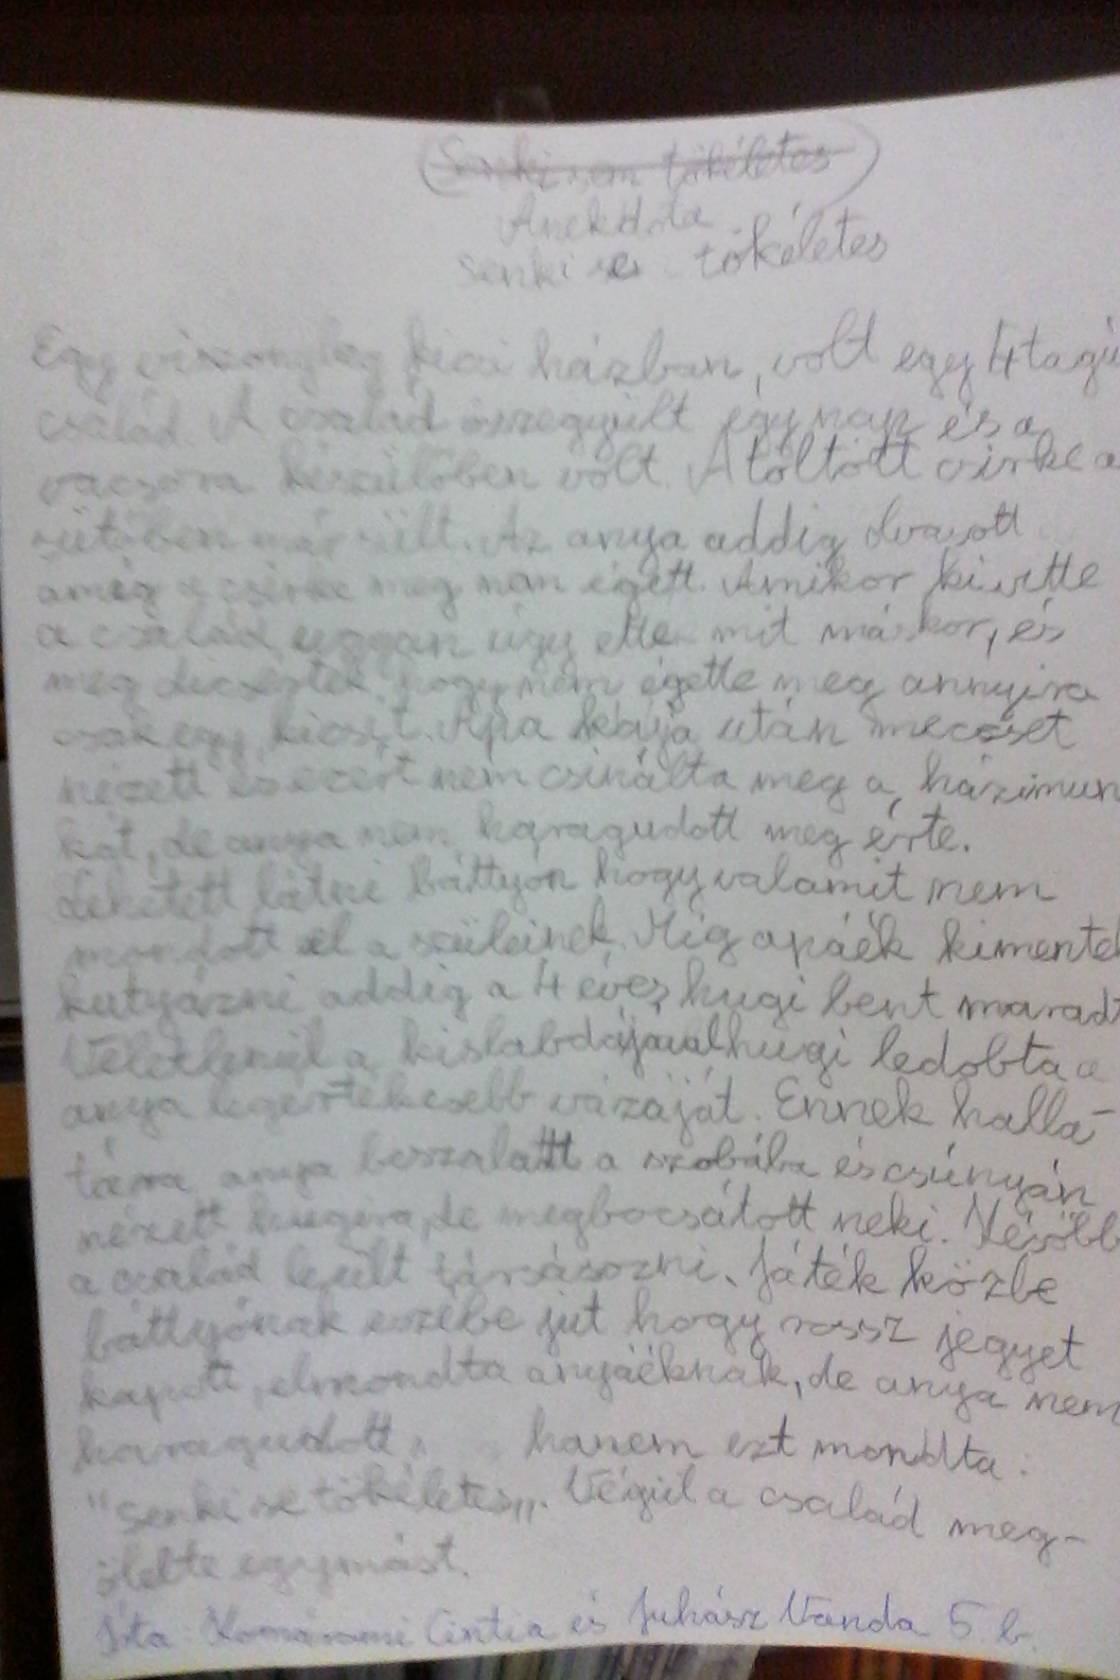 (Senki sem tökéletes)
Anekdota
senki se tökéletes
Egy viszonylag kicsi házban, volt egy 4 tagú
család. A család összegyült egy nap és a
vacsora készülőben volt. A töltött csirke a
sütőben már sült. Az anya addig olvasott
amég a csirke meg nem égett. Amikor kivette
a család ugyan úgy ette mit máskor, és
meg dicsérték hogy nem égette meg annyira
csak egy kicsit. Apa kaja után meccset
nézett és ezért nem csinálta meg a házimun
kát, de anya nem haragudott meg érte.
Lehetett látni báttyón hogy valamit nem
mondott el a szüleinek. Míg apáék kimentek
kutyázni addig a 4 éves hugi bent maradt
Véletlenül a kislabdájaval hugi ledobta a
anya legértékesebb vázáját. Ennek hallá-
tára anya beszaladtt a szobába és csúnyán
nézett hugira, de megbocsátott neki. Később
a család leült társasozni. Játék közbe
báttyónak eszébe jut hogy rossz jegyet
kapott, elmondta anyáéknak, de anya nem
haragudott, hanem ezt mondta:
"senki se tökéletes„. Végül a család meg-
ölelte egymást.
Írta Komáromi Cintia és Juhász Vanda 5. b.